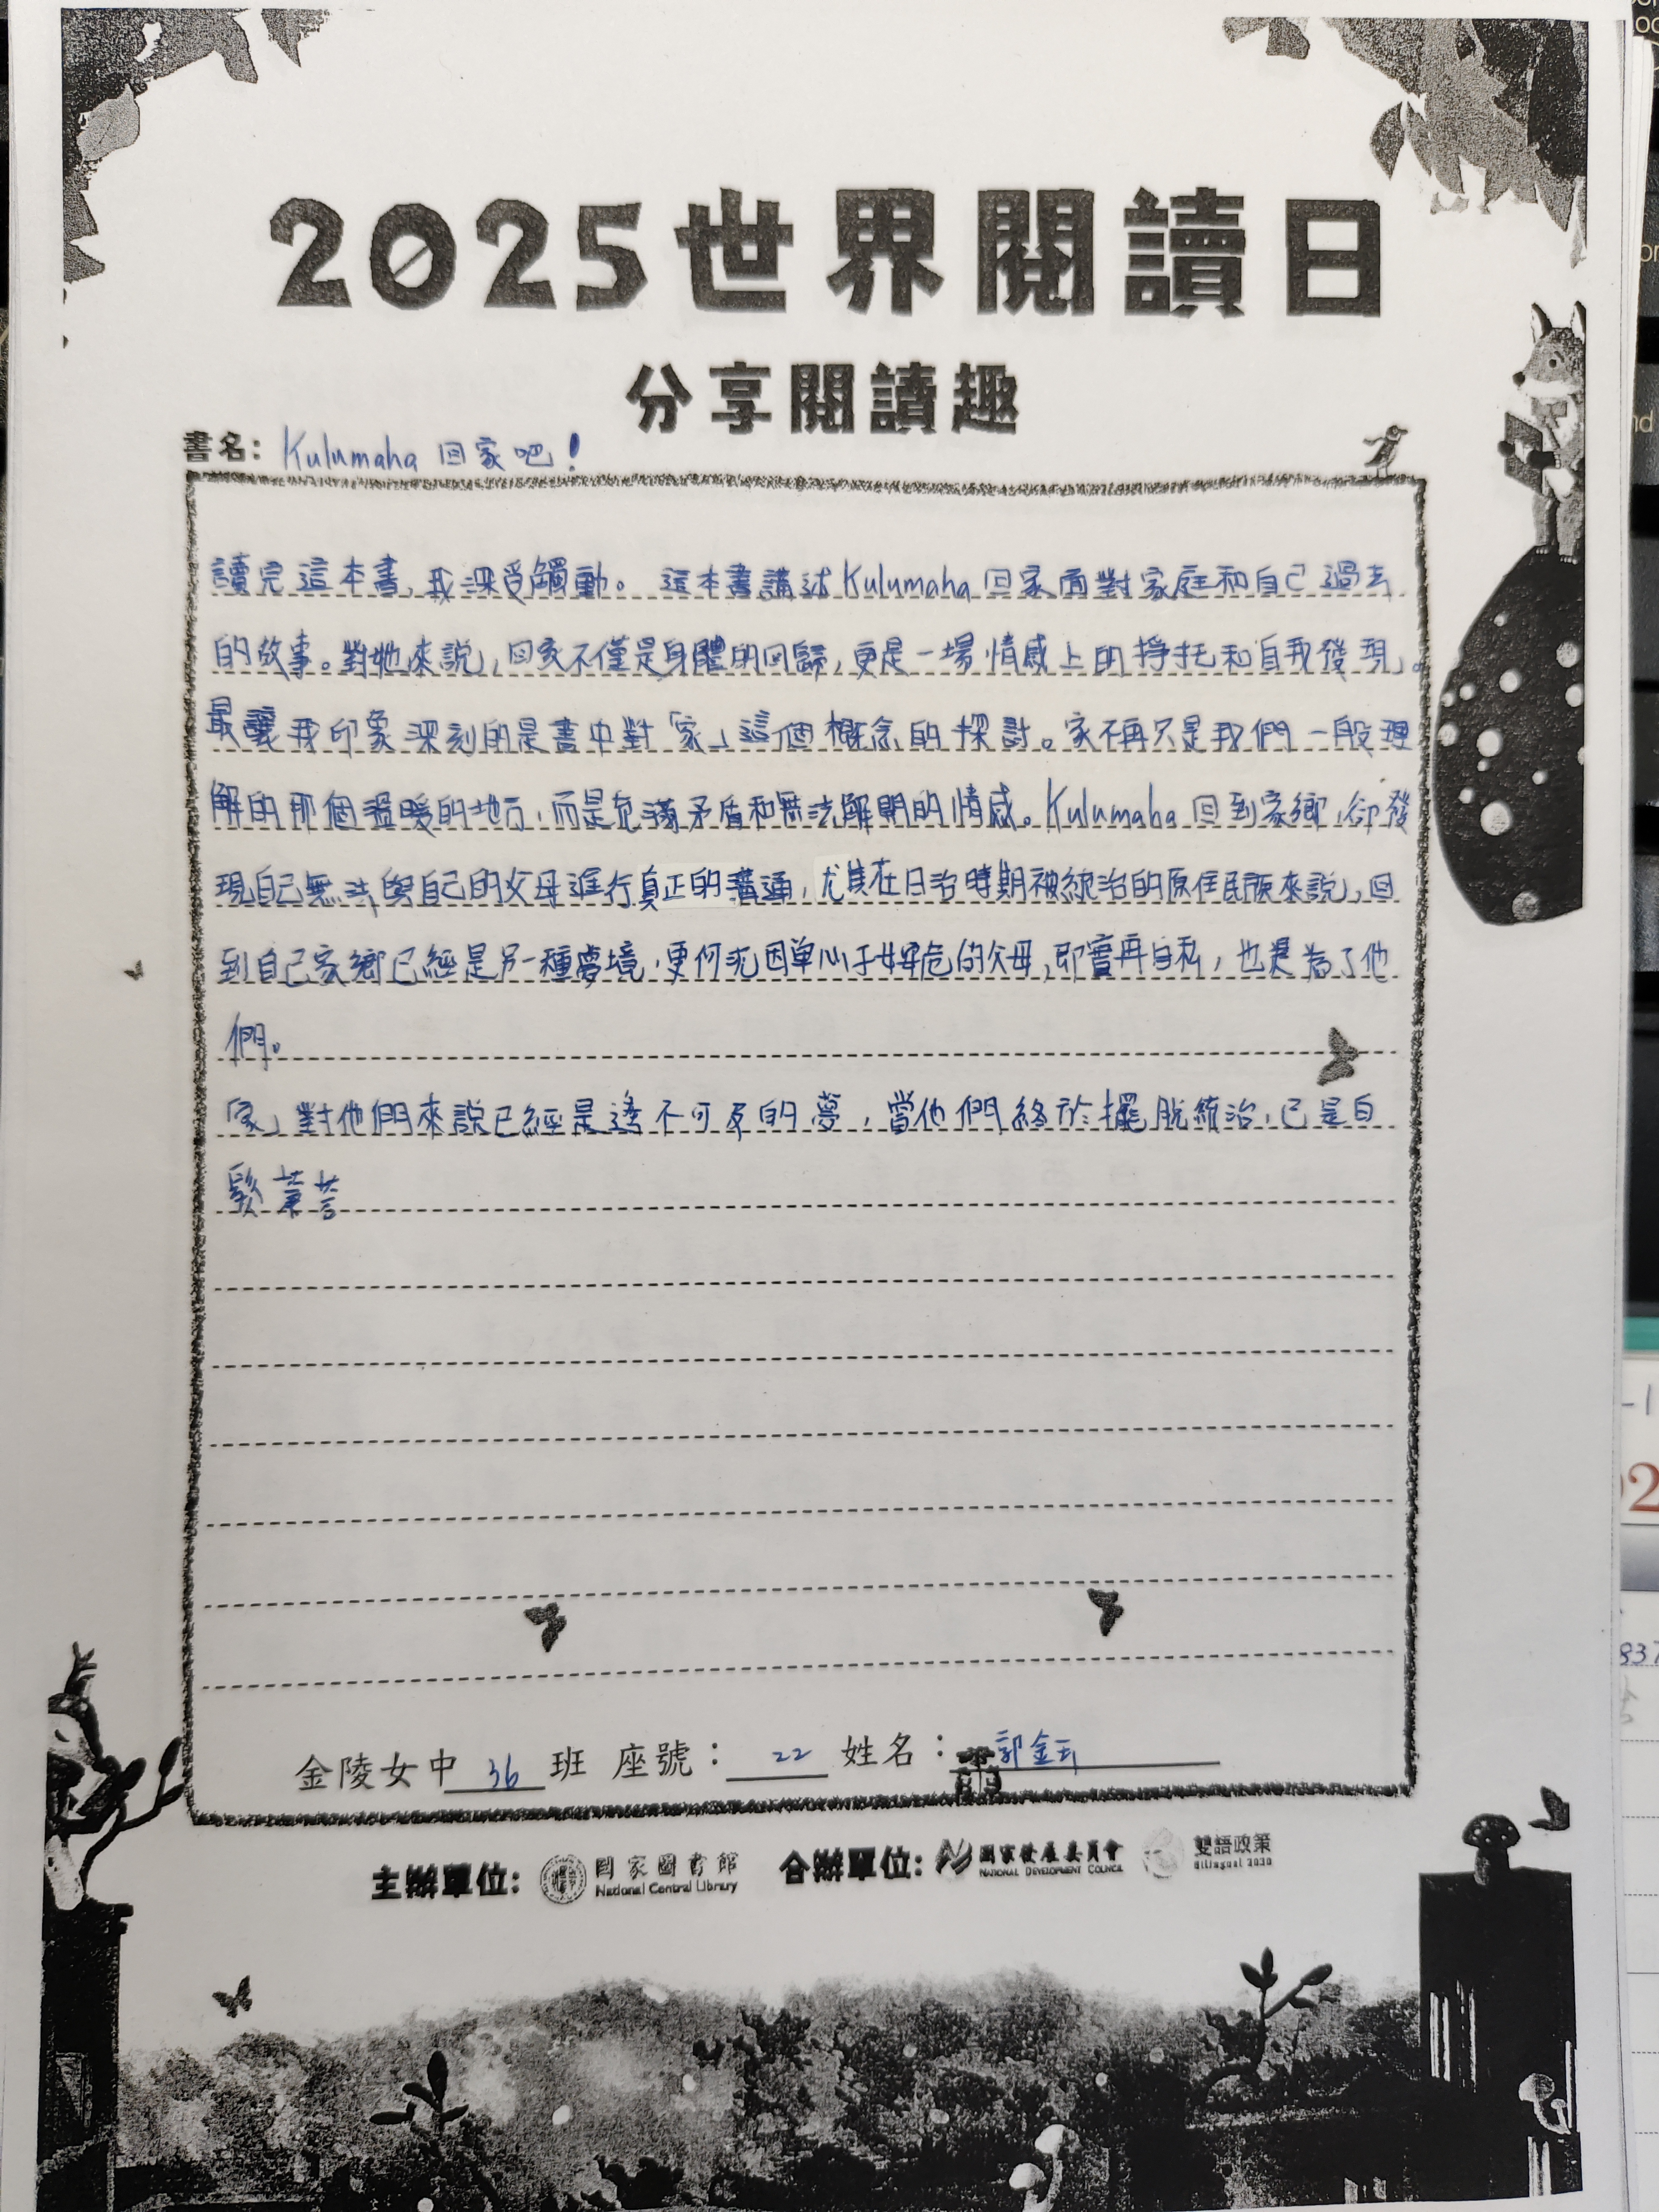 2025世界閱讀日
分享閱讀趣
書名: Kulumaha 回家吧!
讀完這本書,我深受觸動。這本書講述Kulumaha回家面對家庭和自己過去
的故事。對她來說,回家不僅是身體的回歸,更是一場情感上的掙扎和自我發現。
最讓我印象深刻的是書中對「家」這個概念的探討。家不再只是我們一般理
解的那個溫暖的地方,而是充滿矛盾和無法解開的情感。Kulumaha回到家鄉,卻發
現自己無法與自己的父母進行真正的溝通,尤其在日治時期被統治的原住民族來說,回
到自己家鄉已經是另一種夢境,更何況因單心子女安危的父母,即實再自私,也是為了他
們。
「家」對他們來說已經是遙不可及的夢,當他們終於擺脫統治,已是白
髮蒼蒼
金陵女中 36 班 座號: 22 姓名: 郭金
主辦單位: 國家圖書館 合辦單位: 國家發展委員會 雙語政策
National Central Library NATIONAL DEVELOPMENT COUNCIL Bilingual 2030